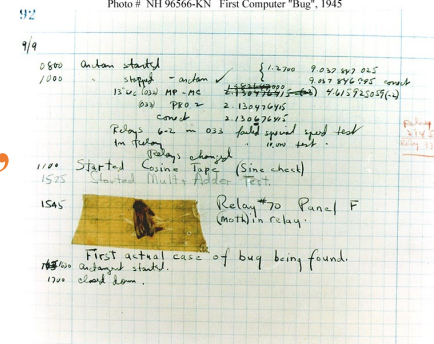 Photo # NH 96566-KN First Computer "Bug", 1945
92
9/9
0800 Antan started
1000 " stopped - antan ✓ { 1.2700 9.037 847 025
9.037 846 995 correct
13"uc (032) MP - MC 2.130476415 (-3) 4.615925059(-2)
(033) PRO 2 2.130476415
correct 2.130676415
Relays 6-2 in 033 failed special speed test
in Relay " 10,000 test.
Relays changed
Relay
1100 Started Cosine Tape (Sine check)
1525 Started Mult+Adder Test.
1545 Relay #70 Panel F
(Moth) in relay.
First actual case of bug being found.
1630 antangent started.
1700 closed down.